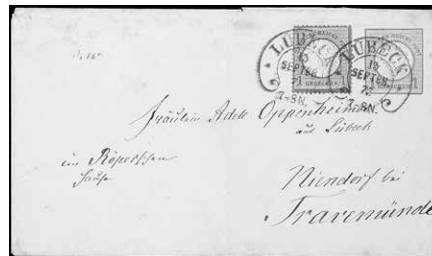 LÜBECK
13
SEPTBR
7-8N.
LÜBECK
13
SEPTBR
7-8N.
Fräulein Adele Oppenheimer
aus Lübeck
im Röperschen
Hause
Niendorf bei
Travemünde